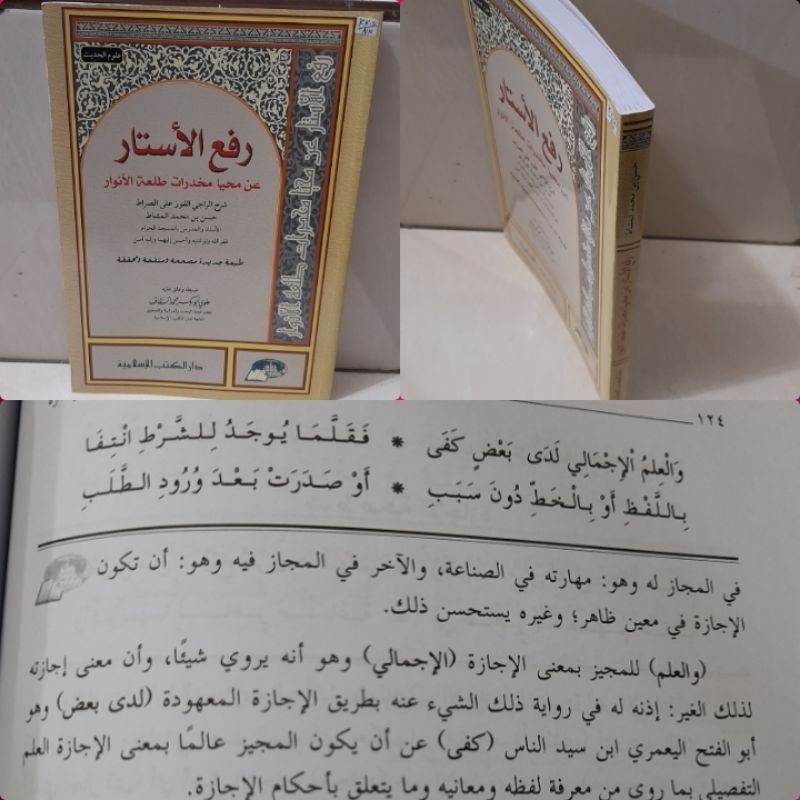 علوم الحديث
رفع الأستار
عن محيا مخدرات طلعة الأنوار
شرح الراجي الفوز على الصراط
حسن بن محمد المشاط
الأستاذ والمدرس بالمسجد الحرام
طبعة جديدة مصححة ومنقحة ومحققة
دار الكتب الإسلامية
رفع الأستار عن محيا مخدرات طلعة الأنوار
رفع الأستار
حسن بن محمد المشاط
١٢٤
وَالْعِلمُ الْإِجْمَالِي لَدَى بَعْضٍ كَفَى * فَقَلَّمَا يُوجَدُ لِلشَّرْطِ انْتِفَا
بِاللَّفْظِ أَوْ بِالْخَطِّ دُونَ سَبَبِ * أَوْ صَدَرَتْ بَعْدَ وُرُودِ الطَّلَبِ
في المجاز له وهو: مهارته في الصناعة، والآخر في المجاز فيه وهو: أن تكون
الإجازة في معين ظاهر؛ وغيره يستحسن ذلك.
(والعلم) للمجيز بمعنى الإجازة (الإجمالي) وهو أنه يروي شيئًا، وأن معنى إجازته
لذلك الغير: إذنه له في رواية ذلك الشيء عنه بطريق الإجازة المعهودة (لدى بعض) وهو
أبو الفتح اليعمري ابن سيد الناس (كفى) عن أن يكون المجيز عالمًا بمعنى الإجازة العلم
التفصيلي بما روى من معرفة لفظه ومعانيه وما يتعلق بأحكام الإجازة.